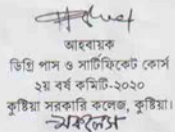 আহবায়ক
ডিগ্রি পাস ও সার্টিফিকেট কোর্স
২য় বর্ষ কমিটি-২০২০
কুষ্টিয়া সরকারি কলেজ, কুষ্টিয়া।